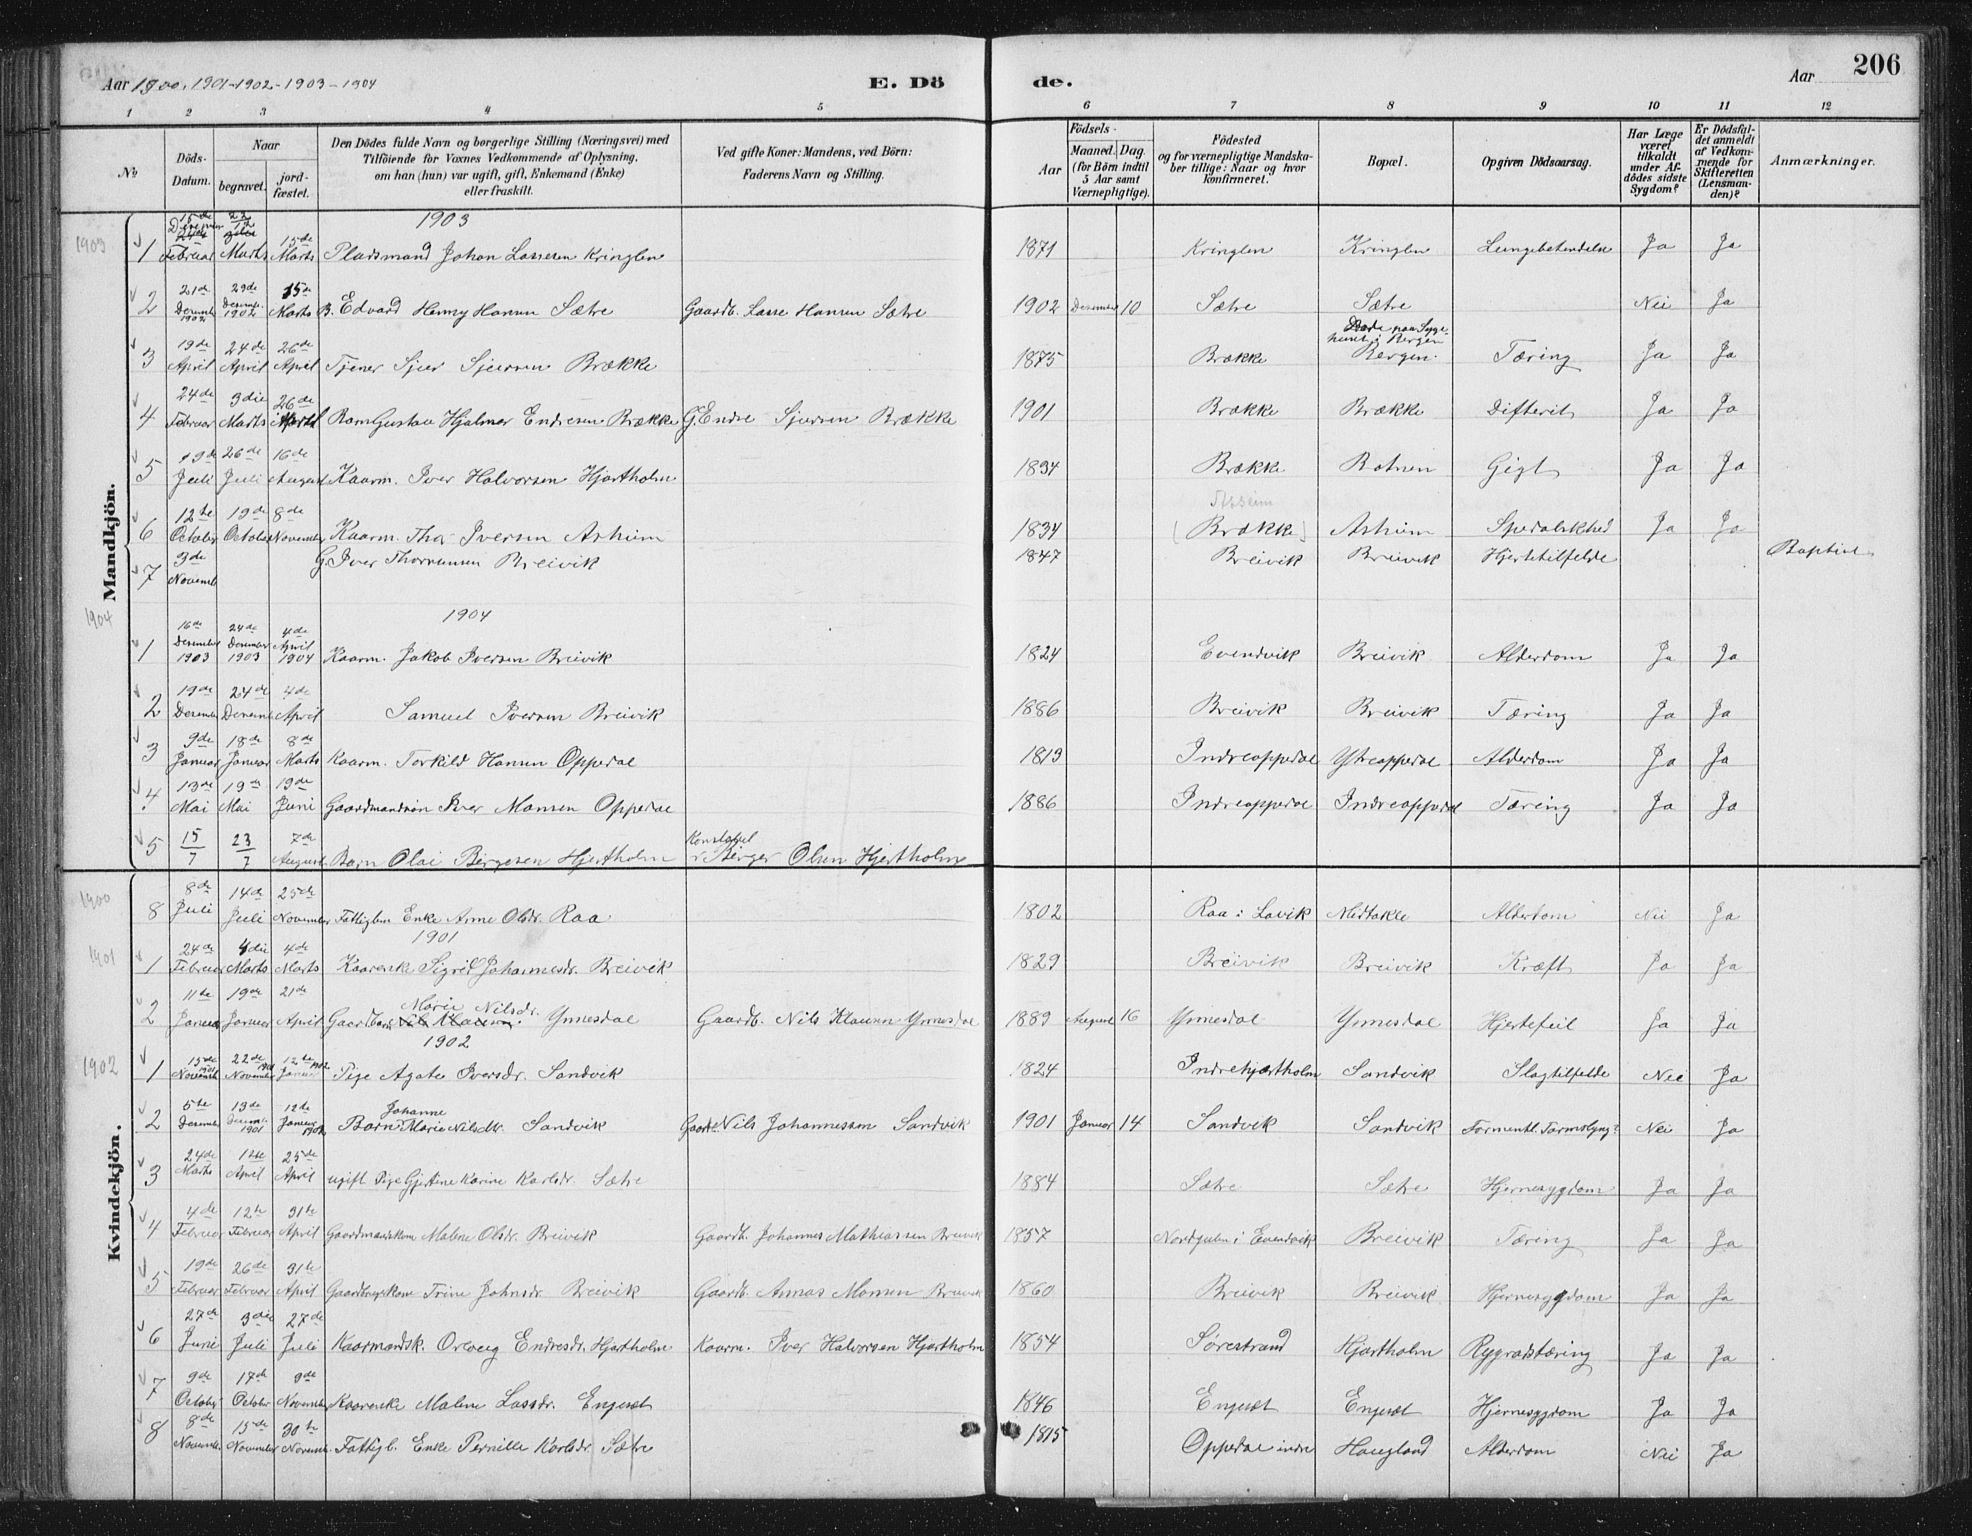 Aar 1900, 1901-1902-1903-1904 E. Dö de. Aar 206
1 2 3 4 5 6 7 8 9 10 11 12
No Döds-Datum. Naar begravet. jordfæstet. Den Dödes fulde Navn og borgerlige Stilling (Næringsvei) med Tilföiende for Voxnes Vedkommende af Oplysning, om han (hun) var ugift, gift, Enkemand (Enke) eller fraskilt. Ved gifte Koner: Mandens, ved Börn: Faderens Navn og Stilling. Aar Födsels- Maaned. Dag. (for Börn indtil 5 Aar samt Værnepligtige). Födested og for værnepligtige Mandskaber tillige: Naar og hvor konfirmeret. Bopæl. Opgiven Dödsaarsag. Har Læge været tilkaldt under Afdödes sidste Sygdom? Er Dödsfaldet anmeldt af Vedkommende for Skifteretten (Lensmanden)? Anmærkninger.
Mandkjön.
1903
1903
1 Februar Marts 15de Marts Pladsmand Johan Lassesen Kringlen 1871 Kringlen Kringlen Lungebetendelse Ja Ja
2 21de Desember 1902 29de Desemb. 1902 15de Marts B. Edvard Henny Hansen Sætre Gaardb. Lasse Hansen Sætre 1902 Desember 10 Sætre Sætre Nei Ja
3 19de April 24de April 26de April Tjener Sjur Sjursen Brække 1875 Brække Bergen. Tæring Ja Ja
4 24de Februar 3die Marts 26de April Barn Gustav Hjalmar Endresen Brække G. Endre Sjursen Brække 1901 Brække Brække Difterit Ja Ja
5 19de Juli 26de Juli 16de August Kaarm. Iver Halvorsen Hjortholm 1834 Brække Botnen Gigt Ja Ja
6 12te October 19de October 8de November Kaarm. Thor Iversen Asheim 1834 [Brække] Asheim Spedalskhed Ja Ja
7 3de Novemb. G. Iver Thormensen Breivik 1847 Breivik Breivik Hjertetilfelde Baptist
1904
1904
1 16de Desember 1903 24de Desember 1903 4de April 1904 Kaarm. Jakob Iversen Breivik 1824 Evendvik Breivik Alderdom Ja Ja
2 19de Desember 24de Desemb 4de April Samuel Iversen Breivik 1886 Breivik Breivik Tæring Ja Ja
3 9de Januar 18de Januar 8de Marts Kaarm. Torkild Hansen Oppedal 1819 Indreoppedal Ytreoppedal Alderdom Ja Ja
4 13de Mai 19de Mai 19de Juni Gaardmandsøn Iver Monsen Oppedal 1886 Indreoppedal Indreoppedal Tæring Ja Ja
5 15/7 23/7 7de August Barn Olai Birgesen Hjertholm Birger Olsen Hjertholm
Kvindekjön.
1900
8 8de Juli 14de Juli 25de November Fattiglem Enke Anne Olsdr. Raa 1802 Raa i Lavik Midtakke Alderdom Nei Ja
1901
1901
1 24de Februar 4die Marts 4de Marts Kaarenke Sigrid Johannesdr. Breivik 1829 Breivik Breivik Kræft Ja Ja
2 11te Januar 19de Januar 21de April Gaardbar Marie Nilsdr. Ynnesdal Gaardb. Nils Klausen Ynnesdal 1889 August 16 Ynnesdal Ynnesdal Hjertefeil Ja Ja
1902
1902
1 15de Novemb 1901 22de November 1901 12te Januar 1902 Pige Agate Iversdr. Sandvik 1824 Indrehjortholm Sandvik Slagtilfelde Nei Ja
2 5te Desember 13de Desemb 1901 12te Januar 1902 Barn Johanne Marie Nilsdr. Sandvik Gaardb. Nils Johannessen Sandvik 1901 Januar 14 Sandvik Sandvik Formentl. Tarmslyng? Nei Ja
3 24de Marts 12te April 25de April ugift Pige Gjertine Karine Karlsdr. Sætre 1884 Sætre Sætre Hjernesygdom Ja Ja
4 4de Februar 12te Februar 31te April Gaardmandskone Malene Olsdr. Breivik Gaardb. Johannes Mathiassen Breivik 1857 Nordgulen i Evendvik Breivik Tæring Ja Ja
5 19de Februar 26de Februar 31te April Trine Johnsdr. Breivik Gaardb. Monsen Breivik 1860 Breivik Breivik Hjernesygdom Ja Ja
6 27de Juni 3die Juli 27de Juli Kaarmandsk. Endresdr. Hjortholm Kaarm. Iver Halvorsen Hjortholm 1854 Sørestrand Hjortholm Rygradstæring Ja Ja
7 9de October 17de October 9de November Kaarenke Malene Lassdr. Engesæt 1846 Engesæt Engesæt Hjernesygdom Ja Ja
8 8de Novemb. 15de November 30te Novemb. Fattigl. Enke Pernille Karlsdr. Sætre 1815 Oppedal indre Haugland Alderdom Nei Ja